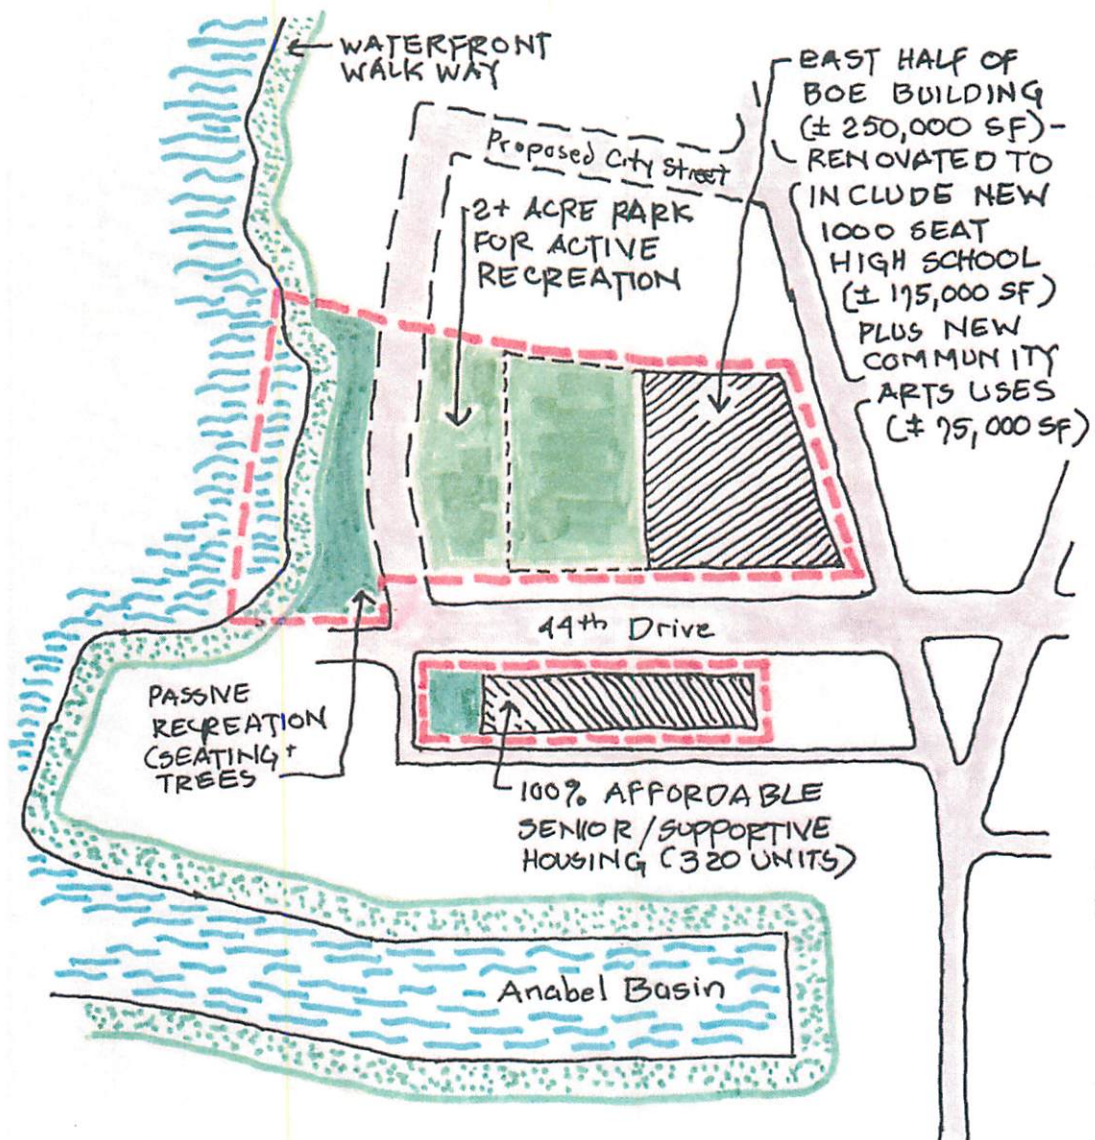 WATERFRONT
WALK WAY
EAST HALF OF
BOE BUILDING
(± 250,000 SF)-
RENOVATED TO
INCLUDE NEW
1000 SEAT
HIGH SCHOOL
(± 175,000 SF)
PLUS NEW
COMMUNITY
ARTS USES
(± 75,000 SF)
Proposed City Street
2+ ACRE PARK
FOR ACTIVE
RECREATION
44th Drive
PASSIVE
RECREATION
(SEATING +
TREES
100% AFFORDABLE
SENIOR/SUPPORTIVE
HOUSING (320 UNITS)
Anabel Basin